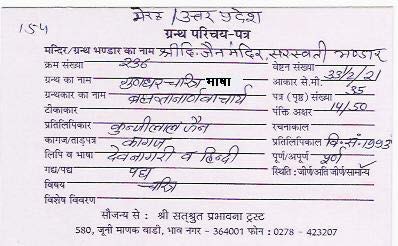 154 मेरठ / उत्तर प्रदेश
ग्रन्थ परिचय-पत्र
मन्दिर/ग्रन्थ भण्डार का नाम श्री दि. जैन मंदिर, सरस्वती भण्डार
क्रम संख्या 236 वेष्टन संख्या 33/2/21
ग्रन्थ का नाम चरित्र भाषा आकार से.मी.
ग्रन्थकार का नाम पत्र (पृष्ठ) संख्या 35
टीकाकार पंक्ति अक्षर 14/50
प्रतिलिपिकार कुन्जीलाल जैन रचनाकाल
कागज/ताड़पत्र कागज प्रतिलिपिकाल वि. सं. 1993
लिपि व भाषा देवनागरी व हिन्दी पूर्ण/अपूर्ण पूर्ण
गद्य/पद्य पद्य स्थिति : जीर्ण/अति जीर्ण/सामान्य
विषय चरित्र
विशेष विवरण
सौजन्य से : श्री सत्श्रुत प्रभावना ट्रस्ट
580, जूनी माणक वाडी, भाव नगर - 364001 फोन : 0278 - 423207